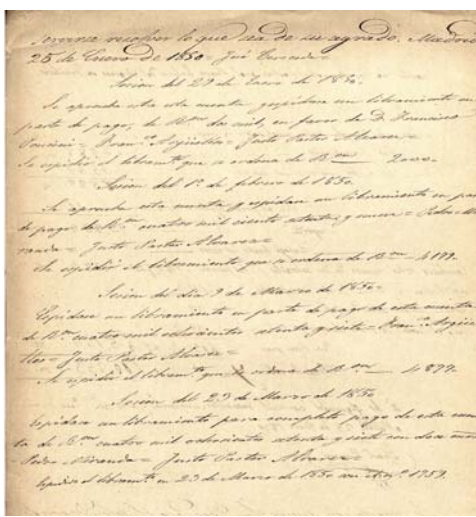 servirse resolver lo que sea de su agrado. Madrid
25 de Enero de 1850 = José
Sesion del 29 de Enero de 1850.
Se aprueba esta cuenta y espidase un libramiento en
parte de pago, de R.s dos mil, en favor de D. Francisco
Ponciano = Fran.co Argüelles = Justo Pastor Alvarez =
Se espidió el libram.to que se ordena de R.s 2000.
Sesion del 1º de febrero de 1850.
Se aprueba esta cuenta y espidase un libramiento en par
de pago de R.s cuatro mil ciento = Pedro
randa = Justo Pastor Alvarez =
Se espidió el libramiento que se ordena de R.s
Sesion del dia 9 de Marzo de 1850.
Espidase un libramiento en parte de pago de esta cuenta
de R.s cuatro mil ochocientos setenta y siete = Fran.co Argüe
lles = Justo Pastor Alvarez =
Se espidió el libram.to que se ordena de R.s 4877.
Sesion del 23 de Marzo de 1850
Espidase un libramiento para completo pago de esta cuen
ta de R.s cuatro mil ochocientos setenta y siete con dos
Pedro Miranda = Justo Pastor Alvarez =
Espidióse el libram.to en 23 de Marzo de 1850 con